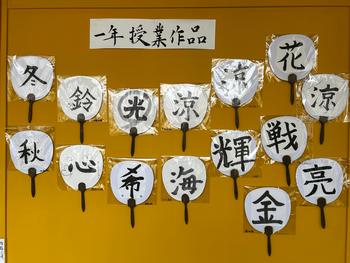 一年授業作品
冬
鈴
光
涼
涼
花
涼
秋
心
希
海
輝
戦
金
亮